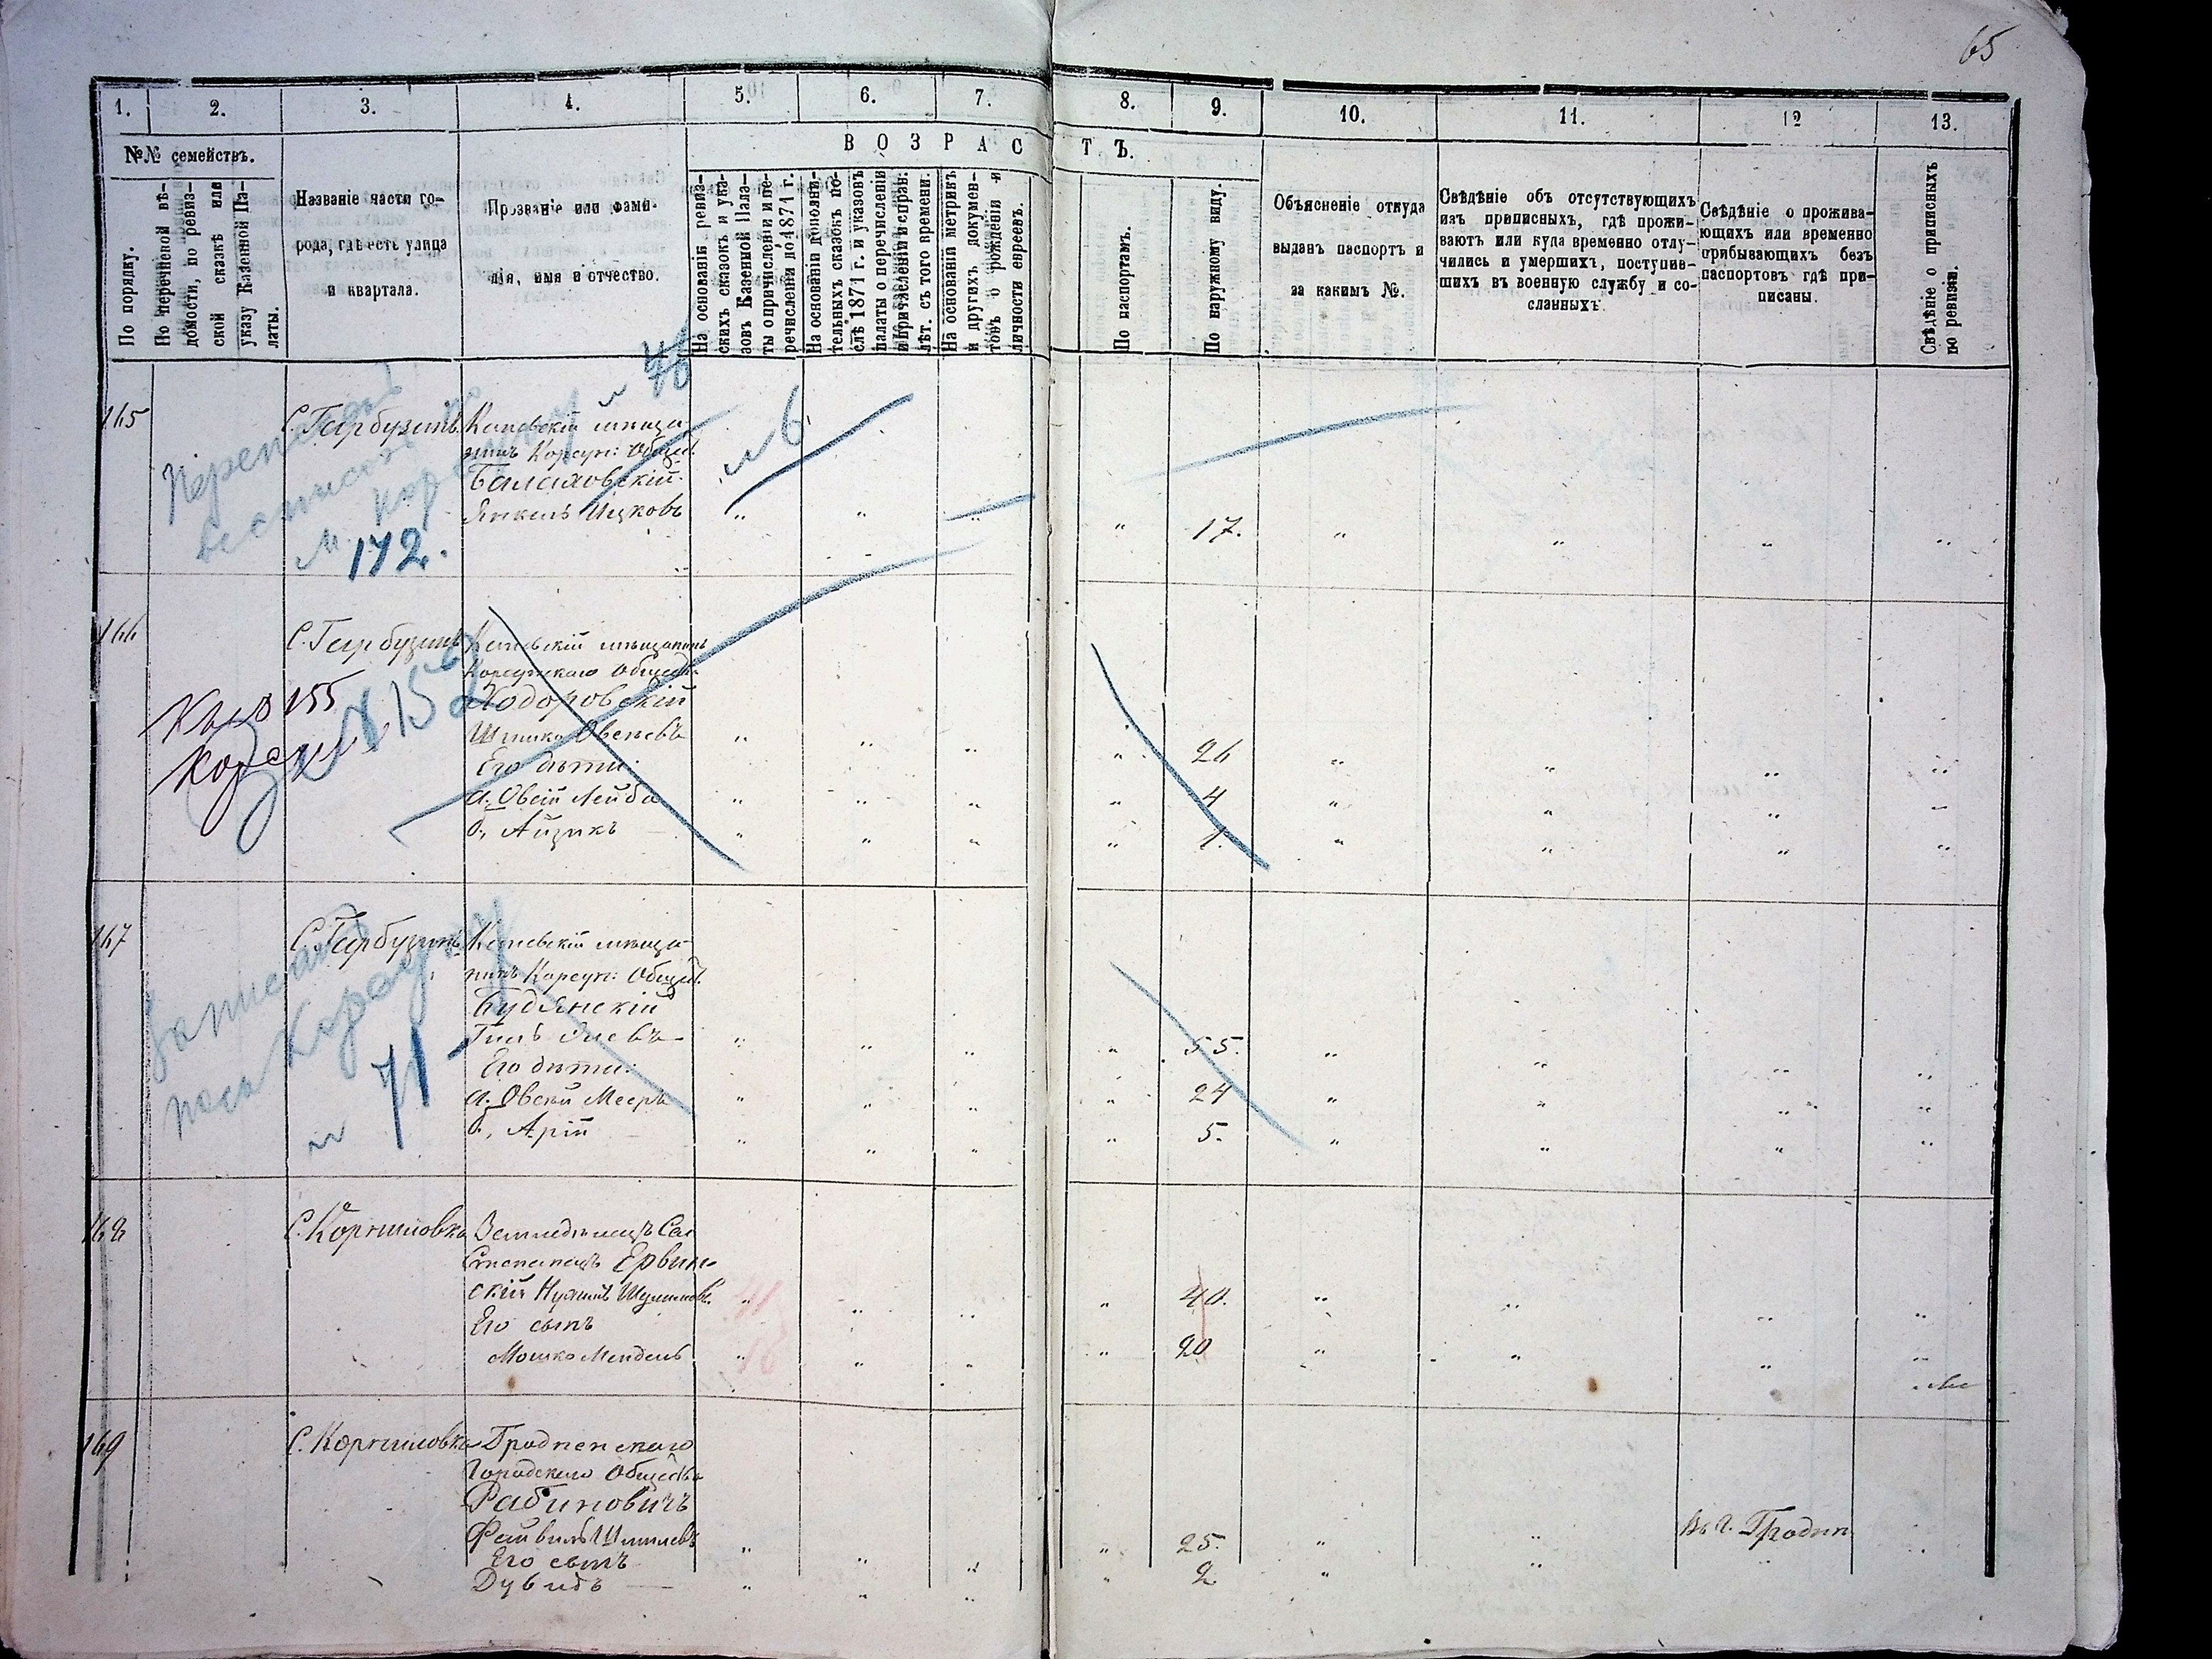 65
1. 2. 3. 4. 5. 6. 7. 8. 9. 10. 11. 12 13.
№№ семействъ.
ВОЗРАСТЪ.
По порядку.
По перечневой вѣ-
домости, по ревиз-
ской сказкѣ или
указу Казенной Па-
латы.
Названіе части го-
рода, гдѣ есть улица
и квартала.
Прозваніе или фами-
лія, имя и отчество.
На основаніи ревиз-
скихъ сказокъ и ука-
зовъ Казенной Пала-
ты о причисленіи и пе-
речисленіи до 1871 г.
На основаніи дополни-
тельныхъ сказокъ по-
слѣ 1871 г. и указовъ
палаты о перечисленіи
и причисленіи и справ.
лѣт. съ того времени.
На основаніи метрикъ
и другихъ докумен-
товъ о рожденіи и
личности евреевъ.
По паспортамъ.
По наружному виду.
Объясненіе откуда
выданъ паспортъ и
за какимъ №.
Свѣдѣніе объ отсутствующихъ
изъ приписныхъ, гдѣ прожи-
ваютъ или куда временно отлу-
чились и умершихъ, поступив-
шихъ въ военную службу и со-
сланныхъ.
Свѣдѣніе о прожива-
ющихъ или временно
прибывающихъ безъ
паспортовъ гдѣ при-
писаны.
Свѣдѣніе о приписныхъ
по ревизіи.
165 С. Гарбузинъ Каневскій мѣща-
нинъ Корсун: Общест.
Балаховскій
Янкель Ицковъ 17.
м 6
м. 172.
166 С. Гарбузинъ Каневскій мѣщанинъ
Корсунскаго Общества
Ходоровскій
Шмико Овсеевъ 26
Его дѣти:
а., Овсій Лейба 4
б., Айзикъ 1.
155
Корсун
152
167 С. Гарбузинъ Каневскій мѣща-
нинъ Корсун: Общест.
Будянскій
55.
Его дѣти:
а., Овсей Мееръ 24
б., Арій 5.
записанъ
Корсуну
м 71
168 С. Корниловка Земледѣлецъ Сел.
Степанецъ Ервин-
скій Нухимъ Шулимовъ. 40.
Его сынъ
Мошко Мендель 20
169 С. Корниловка Гродненскаго
Городскаго Общества
Рабиновичъ
Файвишъ Шмилевъ 25. Въ г. Гродни
Его сынъ
Дувидъ 2